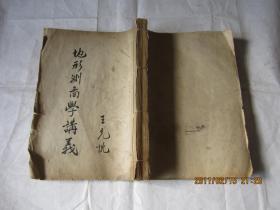 地形測啚學講義
王允悦
2011/02/15 21:23